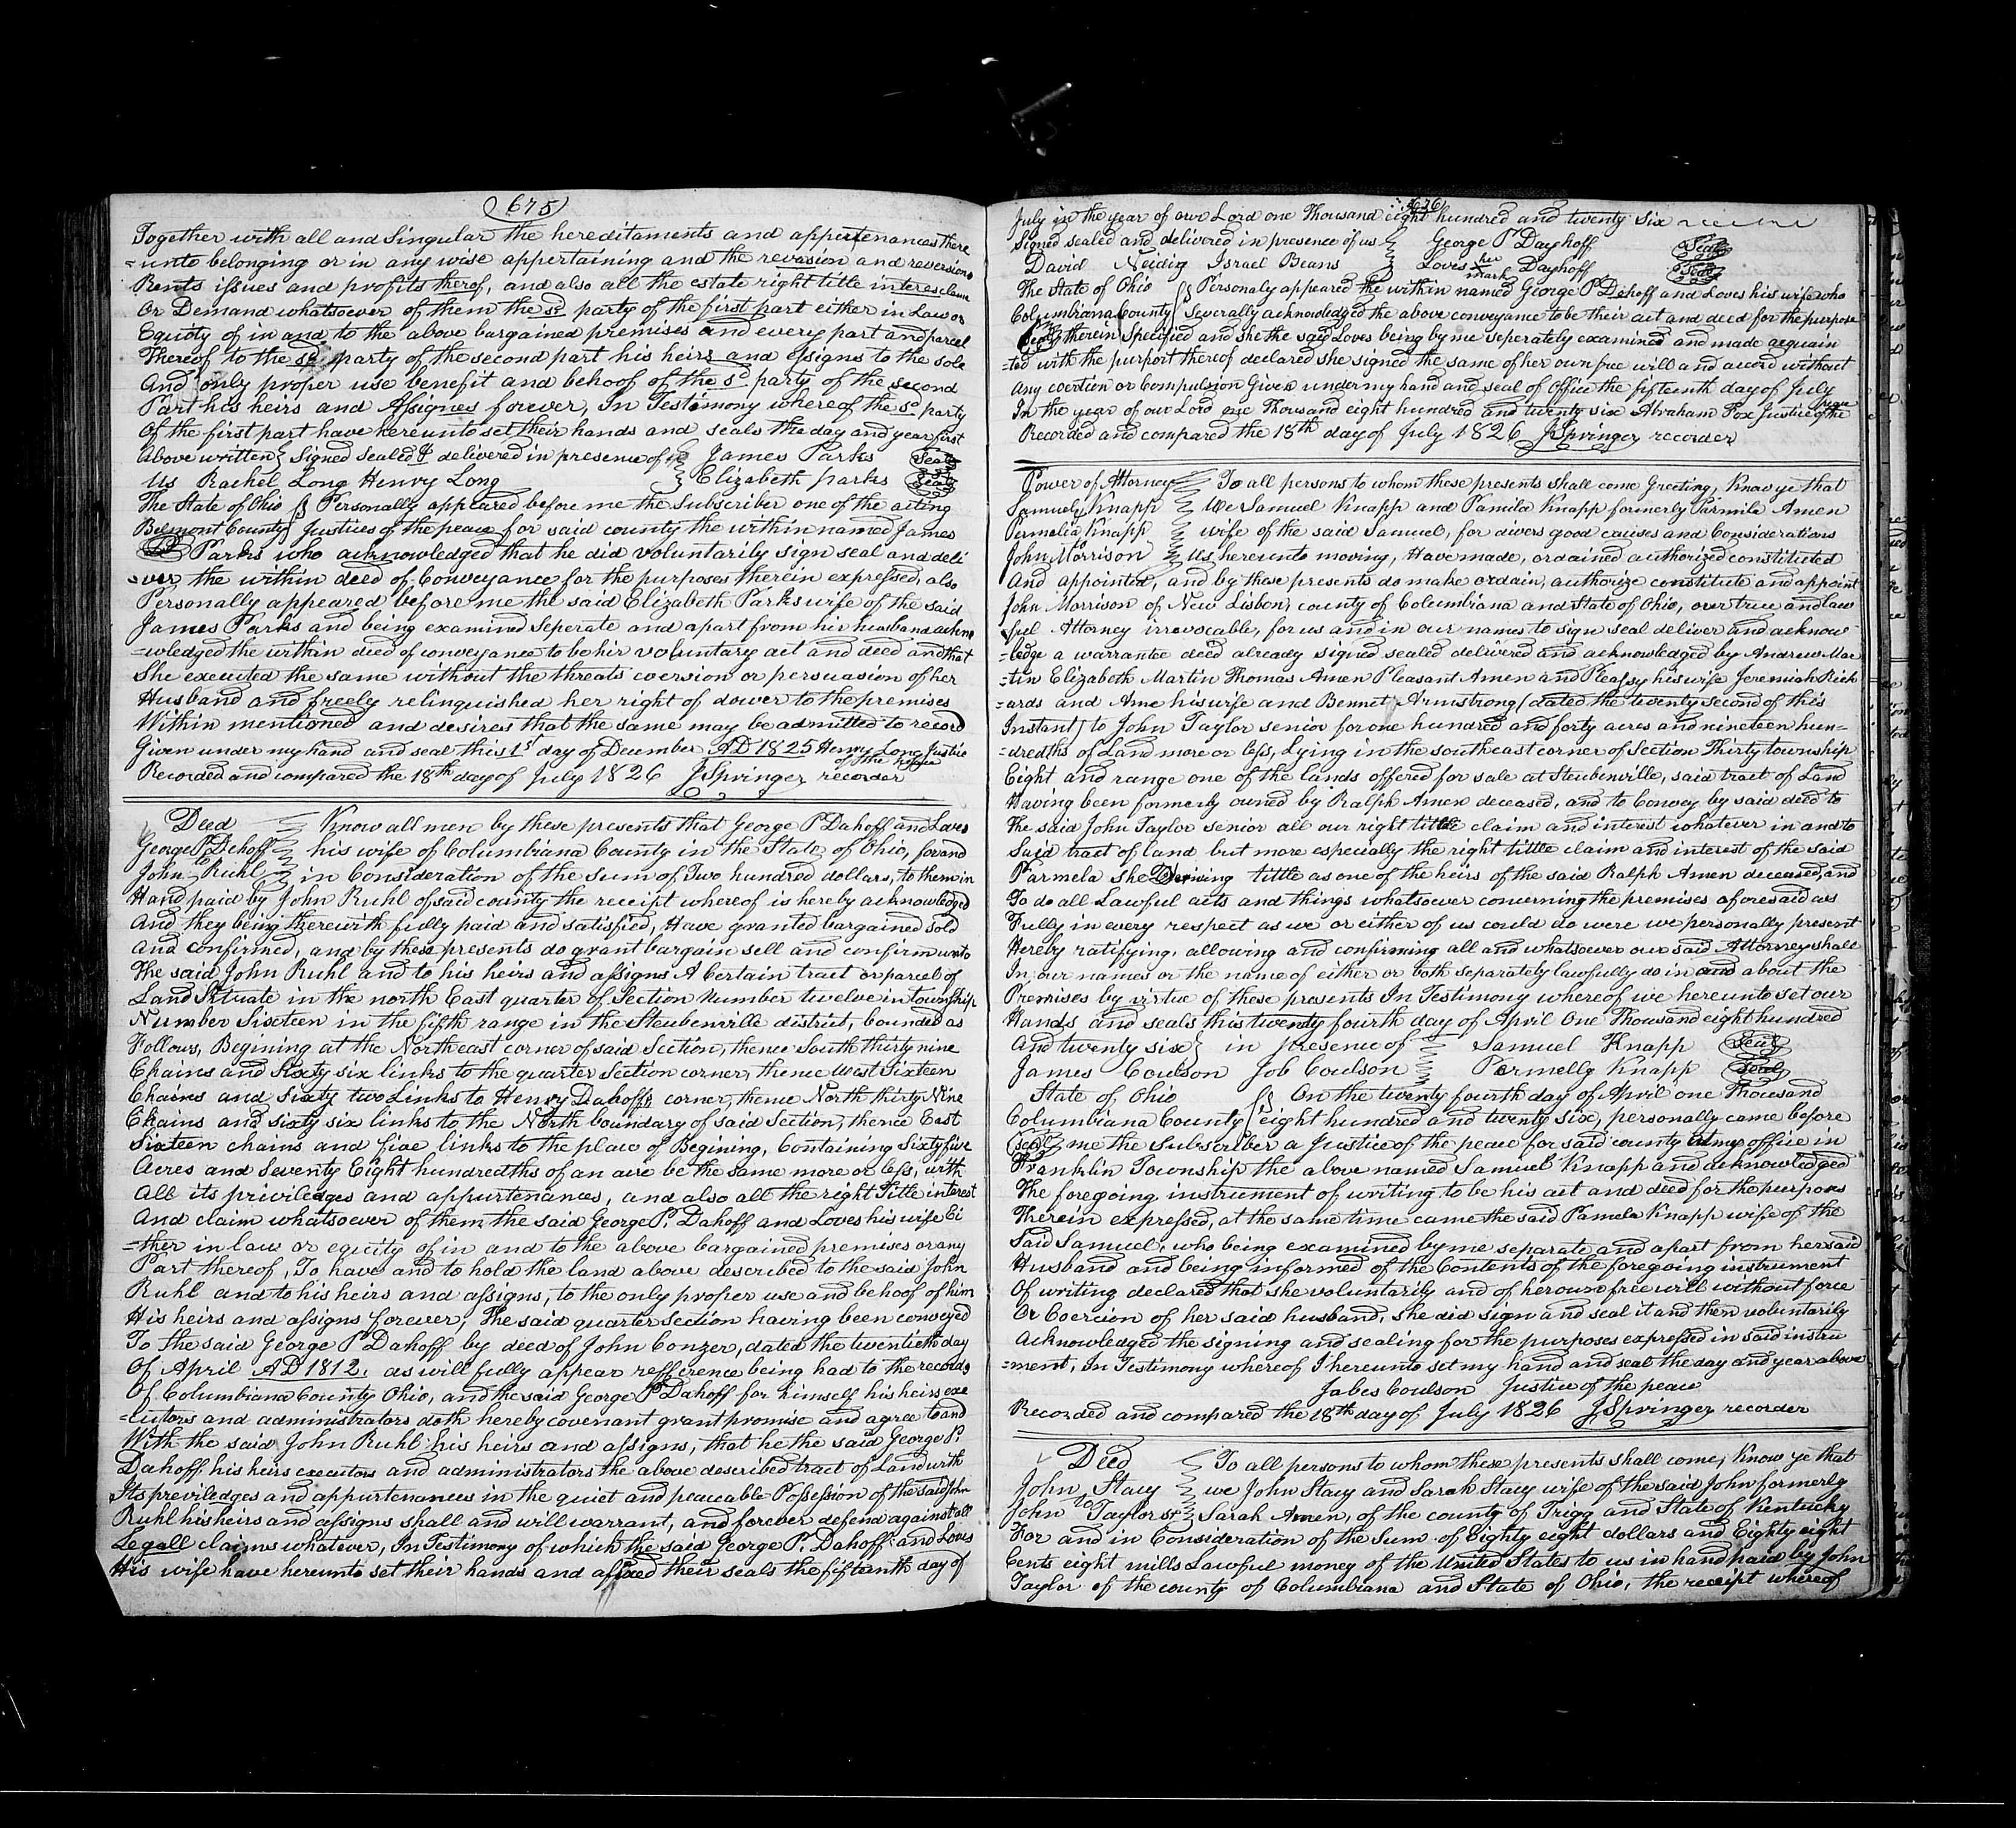 675
Together with all and Singular the hereditaments and appertenances there
=unto belonging or in any wise appertaining and the revasion and reversions
Rents issues and profits therof, and also all the estate right title interes claim
Or Demand whatsoever of them the sd party of the first part either in Law or
Equity of in and to the above bargained premises and every part and parcel
Thereof to the sd party of the second part his heirs and assigns to the sole
And only proper use benefit and behoof of the sd party of the second
Part his heirs and Assignes forever, In Testimony whereof the sd party
Of the first part have hereunto set their hands and seals the day and year first
Above written} Signed Sealed & delivered in presence of James Parks Seal
Us Rachel Long Henry Long Elizabeth Parks Seal
The State of Ohio } Personally appeared before me the Subscriber one of the acting
Belmont County} Justices of the peace for said county the within named James
Parks who acknowledged that he did voluntarily sign seal and deli
=ver the within deed of Conveyance for the purposes therein expressed, also
Personally appeared before me the said Elizabeth Parks wife of the said
James Parks and being examined Seperate and apart from hir husband ackno
=wledged the within deed of conveyance to be hir voluntary act and deed and that
She executed the same without the threats coersion or persuasion of her
Husband and freely relinquished her right of dower to the premises
Within mentioned and desires that the same may be admitted to record
Given under my hand and seal this 1st day of December AD 1825 Henry Long Justice
of the peace
Recorded and compared the 18th day of July 1826 J Springer recorder
Deed Know all men by these presents that George P Dahoff and Loves
George P. Dehoff his wife of Columbiana County in the State of Ohio, for and
to
John Ruhl in Consideration of the sum of Two hundred dollars, to them in
Hand paid by John Ruhl of said county the receipt whereof is hereby acknowledged
And they being therewith fully paid and satisfied, Have granted bargained sold
and confirmed, and by these presents do grant bargain sell and confirm unto
The said John Ruhl and to his heirs and assigns A Certain tract or parcel of
Land Situate in the north East quarter of Section Number twelve in township
Number Sixteen in the fifth range in the Steubenville district, bounded as
Follows, Begining at the Northeast corner of said Section, thence South thirty nine
Chains and Sixty six links to the quarter Section corner, thence West Sixteen
Chains and sixty two Links to Henry Dahoffs corner, thence North thirty Nine
Chains and sixty six links to the North boundary of said Section, thence East
Sixteen chains and five links to the place of Begining, Containing Sixty five
Acres and Seventy Eight hundredths of an acre be the same more or less, with
All its priviledges and appurtenances, and also all the right Title interest
And claim whatsoever of them the said George P. Dahoff and Loves his wife Ei
=ther in law or equity of in and to the above bargained premises or any
Part thereof, To have and to hold the land above described to the said John
Ruhl and to his heirs and assigns, to the only proper use and behoof of him
His heirs and assigns forever, The said quarter Section having been conveyed
To the said George P Dahoff by deed of John Conzer, dated the twentieth day
Of April AD 1812, as will fully appear refference being had to the records
Of Columbiana County Ohio, and the said George P Dahoff for himself his heirs exe
=cutors and administrators doth hereby covenant grant promise and agree to and
With the said John Ruhl his heirs and assigns, that he the said George P.
Dahoff his heirs executors and administrators the above described tract of Land with
Its previledges and appurtenances in the quiet and peaceable Possession of the said John
Ruhl his heirs and assigns shall and will warrant, and forever defend against all
Legall claims whatever, In Testimony of which the said George P. Dahoff and Loves
His wife have hereunto set their hands and affixed their seals the fifteenth day of
676
July in the year of our Lord one Thousand eight hundred and twenty Six
Signed sealed and delivered in presence of us George P Dayhoff Seal
David Neidig Israel Beans Loves her mark Dayhoff Seal
The State of Ohio } Personaly appeared the within named George P Dehoff and Loves his wife who
Columbiana County} Severally acknowledged the above conveyance to be their act and deed for the purpose
Seal therein Specified and she the said Loves being by me seperately examined and made acquain
=ted with the purport thereof declared she signed the same of her own free will and accord without
any coertion or Compulsion Given under my hand and seal of Office the fifteenth day of July
In the year of our Lord one Thousand eight hundred and twenty six Abraham Fox Justice of the peace
Recorded and compared the 18th day of July 1826 J Springer recorder
Power of Attorney To all persons to whom these presents shall come Greeting, Know ye that
Samuel Knapp We Samuel Knapp and Pamila Knapp formerly Parmila Amen
Permelia Knapp wife of the said Samuel, for divers good causes and Considerations
John Morrison us hereunto moving, Have made, ordained authorized constituted
And appointed, and by these presents do make ordain, authorize constitute and appoint
John Morrison of New Lisbon, county of Columbiana and State of Ohio, our true and law
ful Attorney irrevocable, for us and in our names to sign seal deliver and acknow
=ledge a warrantee deed already signed sealed delivered and acknowledged by Andrew Mar
=tin Elizabeth Martin Thomas Amen Pleasant Amen and Pleassy his wife Jeremiah Rich
=ards and Ame his wife and Bennet Armstrong (dated the twenty second of this
Instant) to John Taylor senior for one hundred and forty acres and nineteen hun=
=dredths of Land more or less, Lying in the southeast corner of Section Thirty township
Eight and range one of the lands offered for sale at Steubenville, said tract of Land
Having been formerly owned by Ralph Amen deceased, and to Convey by said deed to
The said John Taylor senior all our right tittle claim and interest whatever in and to
Said tract of land but more especially the right tittle claim and interest of the said
Parmela She Deriving tittle as one of the heirs of the said Ralph Amen deceased, and
To do all Lawful acts and things whatsoever concerning the premises aforesaid as
Fully in every respect as we or either of us could do were we personally present
Hereby ratifying, allowing and confirming all and whatsoever our said Attorney shall
In our names or the name of either or both separately lawfully do in and about the
Premises by virtue of these presents In Testimony whereof we hereunto set our
Hands and seals this twenty fourth day of April One Thousand eight hundred
And twenty six} in presence of Samuel Knapp Seal
James Coulson Job Coulson Parmelly Knapp Seal
State of Ohio } On the twenty fourth day of April one Thousand
Columbiana County} eight hundred and twenty six, personally came before
Seal me the Subscriber a Justice of the peace for said county at my office in
Franklin Township the above named Samuel Knapp and acknowledged
The foregoing instrument of writing to be his act and deed for the purposes
Therein expressed, at the same time came the said Pamela Knapp wife of the
Said Samuel, who being examined by me separate and apart from her said
Husband and being informed of the Contents of the foregoing instrument
Of writing declared that she voluntarily and of her own free will without force
Or Coercion of her said husband, she did sign and seal it and then voluntarily
Acknowledged the signing and sealing for the purposes expressed in said instru
=ment, In Testimony whereof I hereunto set my hand and seal the day and year above
Jabes Coulson Justice of the peace
Recorded and compared the 18th day of July 1826 J Springer recorder
Deed To all persons to whom these presents shall come, Know ye that
John Stacy we John Stacy and Sarah Stacy wife of the said John formerly
to
John Taylor sr Sarah Amen, of the county of Trigg and State of Kentucky
For and in Consideration of the Sum of Eighty eight dollars and Eighty eight
Cents eight mills Lawful money of the United States to us in hand paid by John
Taylor of the county of Columbiana and State of Ohio, the receipt whereof